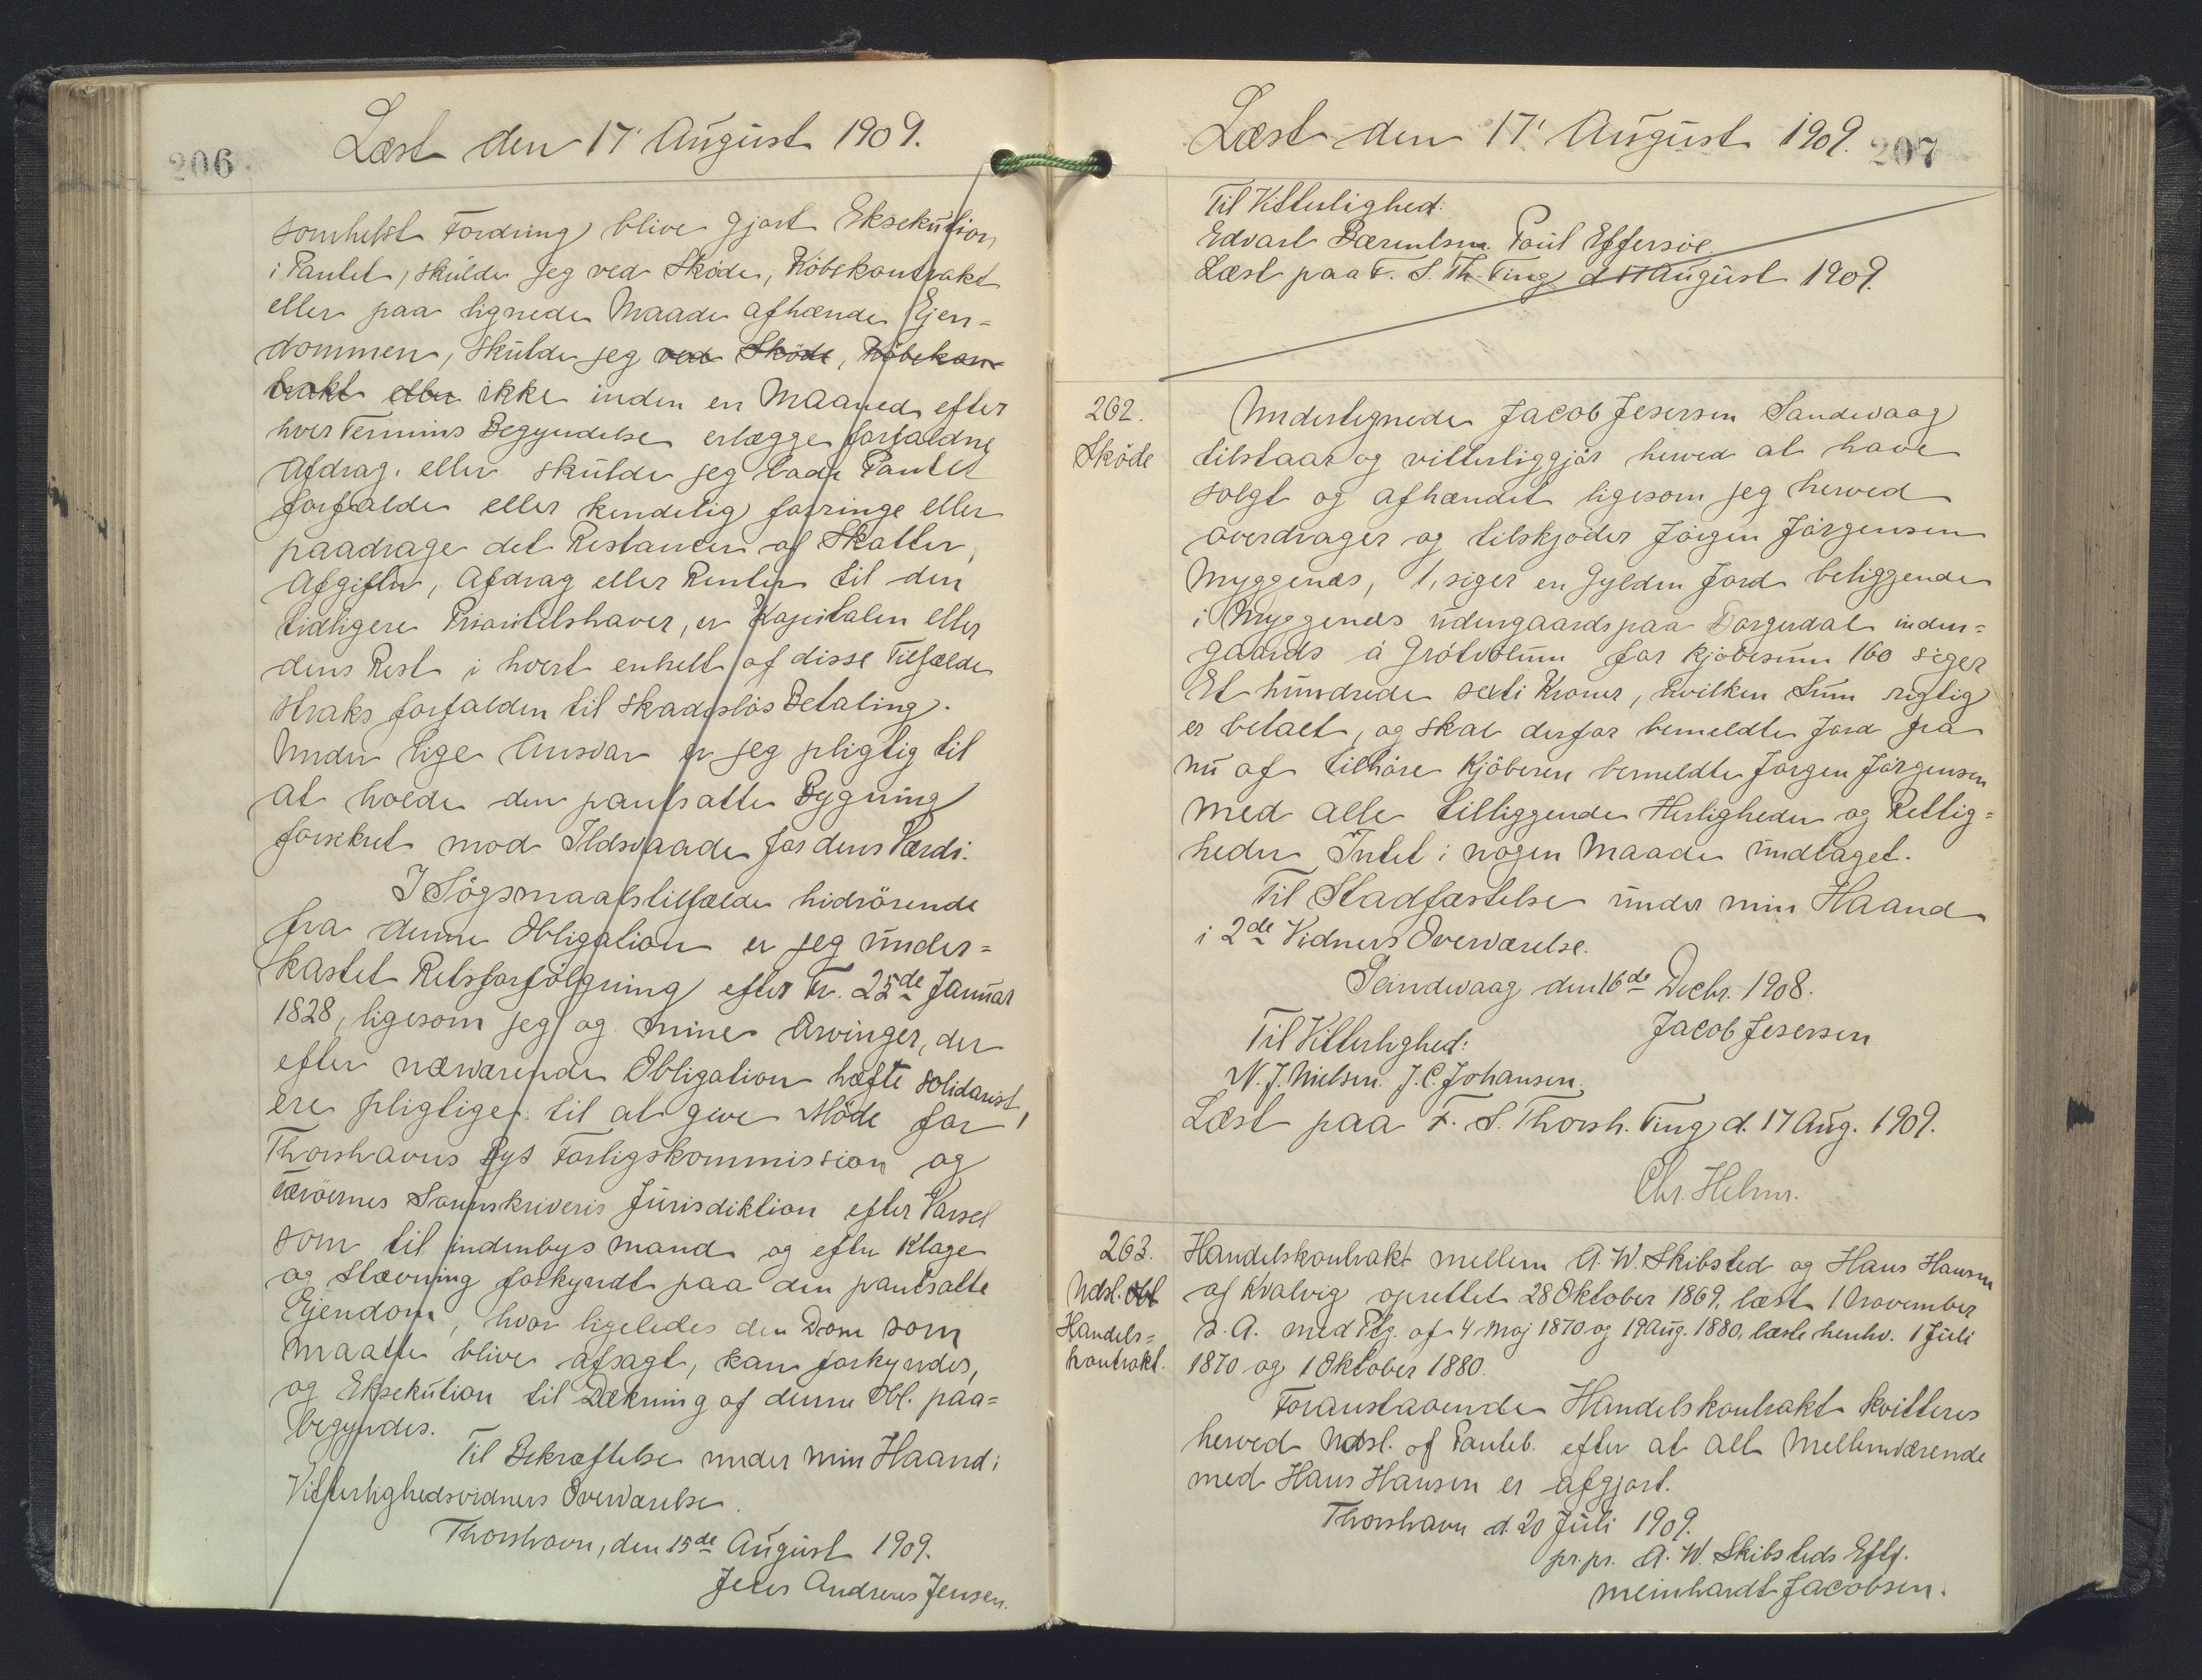 206
Læst den 17' August 1909.
somhelst Fordring blive gjort Eksekution
i Pantet, skulde jeg ved Skøde, Købekontrakt
eller paa lignede Maade afhænde Ejen=
dommen, skulde jeg ved Skøde, Købekon-
trakt eller ikke inden en Maaned efter
hver Termins Begyndelse erlægge forfaldne
Afdrag, eller skulde jeg lade Pantet
forfalde eller kendelig forringe eller
paadrage det Restancer af Skatter,
Afgifter, Afdrag eller Renter til den
tidligere Prioritetshaver, er Kapitalen eller
dens Rest i hvert enkelt af disse Tilfælde
straks forfalden til skadesløs Betaling.
Under lige Ansvar er jeg pligtig til
at holde den pantsatte Bygning
forsikret mod Ildsvaade for dens Værdi.
I Søgsmaalstilfælde hidrørende
fra denne Obligation er jeg under=
kastet Retsforfølgning efter Fr. 25de Januar
1828, ligesom jeg og mine Arvinger, der
efter nærværende Obligation hæfte solidarist,
ere pligtige til at give Møde for
Thorshavns Bys Forligskommission og
Færøernes Sorenskriveris Jurisdiktion efter Varsel
som til indenbys mand og efter Klage
og Stævning forkyndt paa den pantsatte
Ejendom, hvor ligeledes den Dom som
maatte blive afsagt, kan forkyndes,
og Eksekution til Dækning af denne Obl. paa=
begyndes.
Til Bekræftelse under min Haand i
Vitterlighedsvidners Overværelse.
Thorshavn, den 15de August 1909.
Jens Andreas Jensen.
Læst den 17' August 1909.
207
Til Vitterlighed:
Edvart Bærentsen. Poul Effersøe
Læst paa F. S. Th. Ting d 17 August 1909.
262.
Skøde
Undertegnede Jacob Jesersen Sandevaag
tilstaar og vitterliggjør herved at have
solgt og afhændet ligesom jeg herved
overdrager og tilskjøder Jørgen Jørgensen
Myggenæs, 1, siger en Gylden Jord beliggende
i Myggenæs udengaards paa Dorgerdal inden=
gaards á Grótvølum for Kjøbesum 160 siger
Et hundrede sexti Kroner, hvilken Sum rigtig
er betalt, og skal derfor bemeldte Jord fra
nu af tilhøre Kjøberen bemeldte Jørgen Jørgensen
med alle tilliggende Herligheder og Rettig=
heder Intet i nogen Maade undtaget.
Til Stadfæstelse under min Haand
i 2de Vidners Overværelse.
Sandevaag den 16de Decbr. 1908.
Jacob Jesersen
Til Vitterlighed:
N. J. Nielsen. J. C. Johansen.
Læst paa F. S. Thorsh. Ting d. 17 Aug. 1909.
Chr. Helmer.
263.
Udsl. Obl
Handels=
kontrakt.
Handelskontrakt mellem A. W. Skibsted og Hans Hansen
af Kvalvig oprettet 28 Oktober 1869, læst 1 November
s. A. med Plg. af 4 Maj 1870 og 19 Aug. 1880, læste henhv. 1 Juli
1870 og 1 Oktober 1880.
Foranstaaende Handelskontrakt kvitteres
herved Udsl. af Panteb. efter at alt Mellemværende
med Hans Hansen er afgjort.
Thorshavn d. 20 Juli 1909.
pr. pr. A. W. Skibsteds Eftf.
Meinhardt Jacobsen.